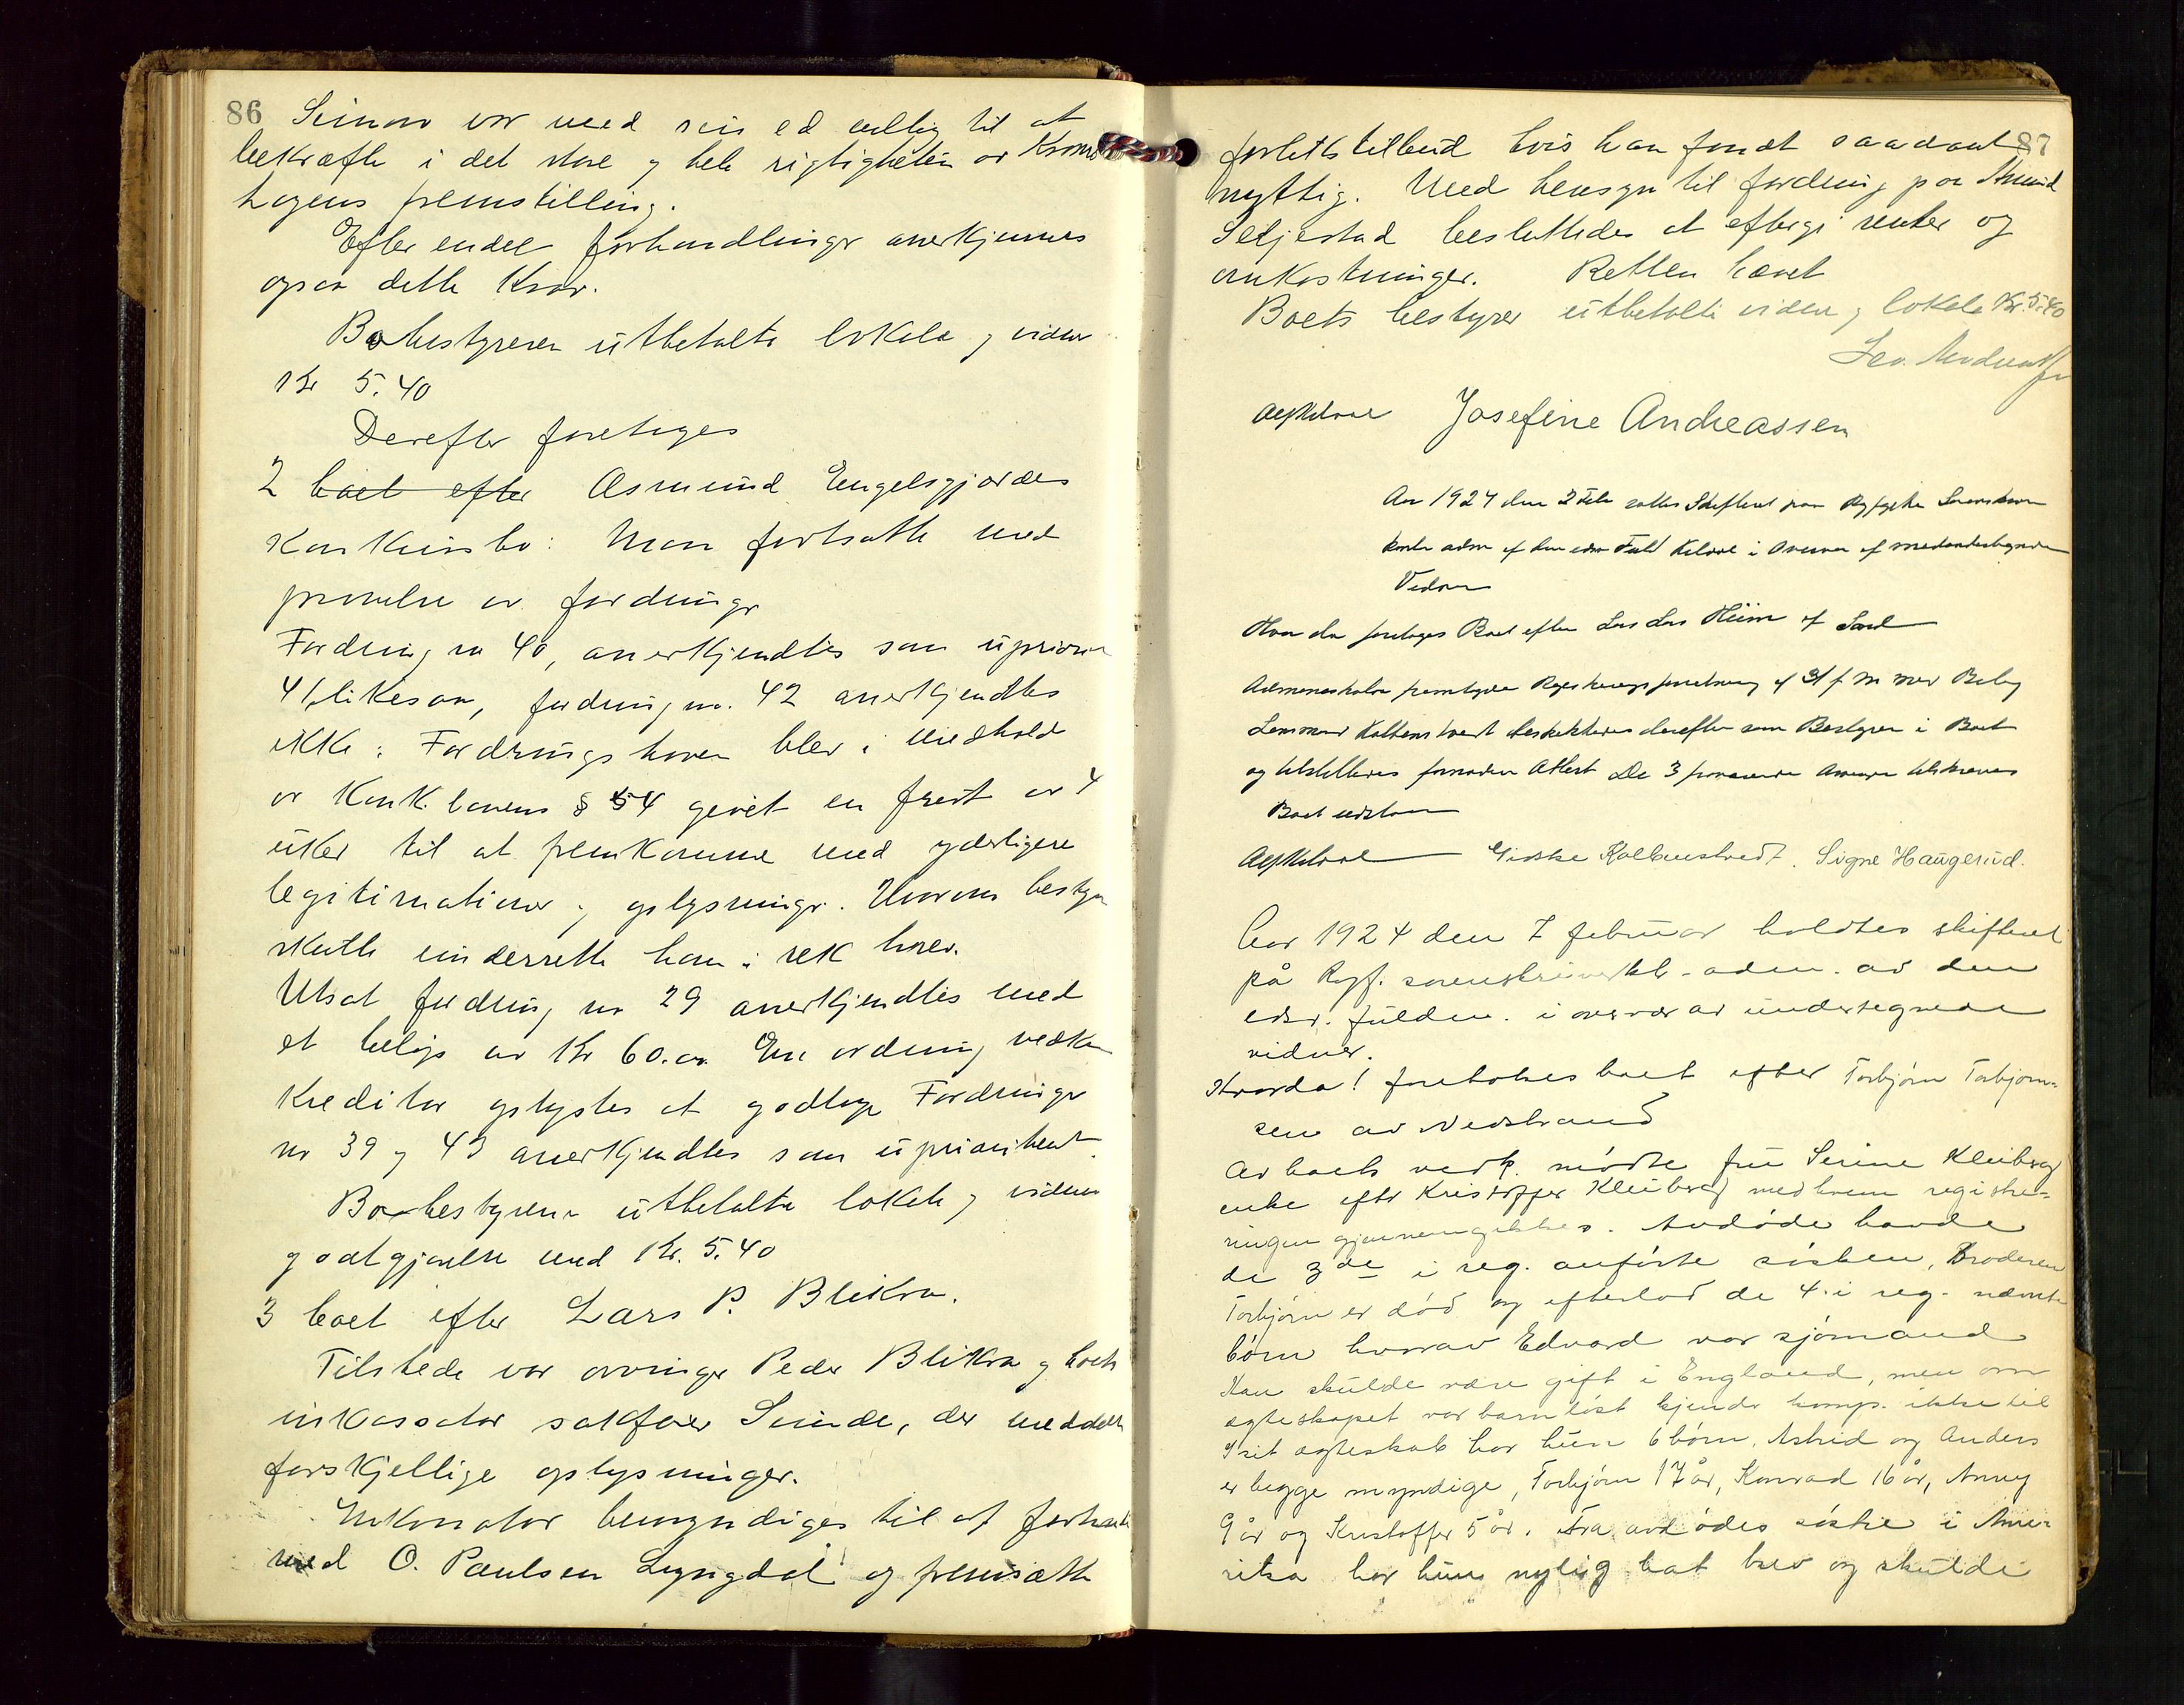 86
Simon var med sin ed villig til at
bekræfte i det store og hele rigtigheten av Krons
hagens fremstilling.
Efter endel forhandlinger anerkjennes
ogsaa dette Krav.
Bobestyreren utbetalte lokale og vidner
Kr 5.40
Derefter foretoges
2 boet efter Asmund Engelsgjerdes
konkursbo: Man fortsatte med
prøvelse av fordringer
Fordring nr 40, anerkjendtes som uprior
41 likesaa, fordring nr. 42 anerkjendtes
ikke. Fordringshaver blev i medhold
av Konk. lovens § 54 givet en frist av 4
uker til at fremkomme med yderligere
legitimationer og oplysninger. Hvorom bestyr
skulle underrette ham i rek brev.
Utsat fordring nr 29 anerkjendtes med
et beløp av Kr 60.00 En ordning vedk
Kreditor oplystes at godtage Fordringer
nr 39 og 43 anerkjendtes som uprioritert.
Bobestyrer utbetalte lokale og vidner
godtgjørelse med Kr. 5.40
3 boet efter Lars P. Blikra.
Tilstede var arvinger Peder Blikra og boets
inkassator sakfører Sunde, der meddelte
forskjellige oplysninger.
Inkassator bemyndiges til at forhandle
med O. Paulsen Lyngdal og fremsætte
87
forliktstilbud hvis han fandt saadant
nyttig. Med hensyn til fordring paa Amund
Seljestad besluttedes at eftergi renter og
omkostninger. Retten hævet
Boets bestyrer utbetalte vidner og lokale Kr. 5.40
Josefine Andreassen
Aar 1924 den 2 Feb sattes Skifteret paa Ryfylke Sorenskriver
kontor adm af den edsv Fuld i Overvær af medundertegnede
Vidner
Hvor da foretoges Boet efter Lars Lars Heim af Sand
og tilstilledes fornøden Attest De 3 Arvinger tilskreves
Boet udstaar
Giske Kolbenstvedt. Signe Haugerud.
Aar 1924 den 7 februar holdtes skifteret
på Ryf. sorenskriverkt. adm. av den
edsv. fuldm. i overvær av undertegnede
vidner.
Hvorda! foretokes boet efter Torbjørn Torbjørn-
sen av Nedstrand
Av boets vedk. mødte fru Serine Kleiberg
enke efter Kristoffer Kleiberg med hvem registre-
ringen gjennemgikkes. Avdøde havde
de 3de i reg. anførte søsken, Broderen
Torbjørn er død og efterlod de 4 i reg. nævnte
børn hvorav Edvard var sjømand
Han skulde være gift i England, men om
egteskapet var barnløst kjendr komp. ikke til
I sit egteskab har hun 6 børn, Astrid og Anders
er begge myndige, Torbjørn 17 år, Konrad 16 år, Anny
9 år og Kristoffer 5 år. Fra avdødes søster i Ame-
rika har hun nylig hat brev og skulde